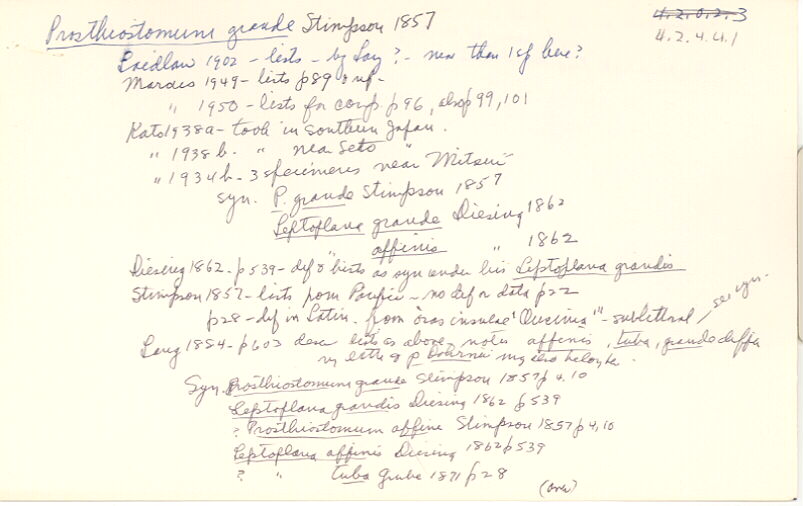 Prosthiostomum grande Stimpson 1857
4.2.0.2.3
4.2.4.4.1
Laidlaw 1902 - lists - by Lang ? - near than 1 sp here?
Marcus 1949 - lists p89
" 1950 - lists for comp p96, also p99, 101
Kato 1938a - took in southern Japan.
" 1938b. " near Seto "
" 1934b - 3 specimens near Mitsui
syn. P. grande Stimpson 1857
Leptoplana grande Diesing 1862
affinis " 1862
Diesing 1862 - p539 - def & lists as syn under his Leptoplana grandis
Stimpson 1857 - lists from Pacific - no def or data p22
p28 - def in Latin. from "oras insulae 'Ousima'" - sublittoral
see syn.
Lang 1884 - p603 descr lists as above, notes affinis, tuba, grande differ
very little & p Dohrnii may also belong here.
Syn. Prosthiostomum grande Stimpson 1857 p 4, 10
Leptoplana grandis Diesing 1862 p539
? Prosthiostomum affine Stimpson 1857 p 4, 10
Leptoplana affinis Diesing 1862 p539
? " tuba Grube 1871 p28
(over)